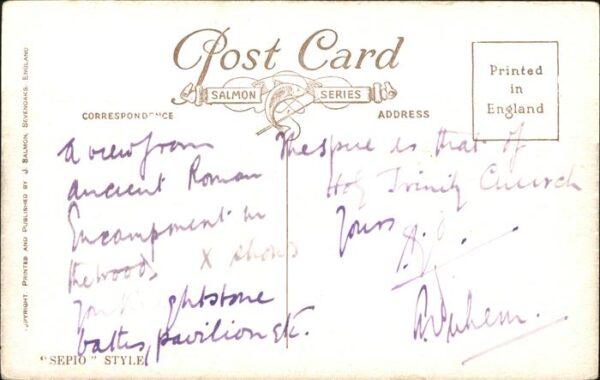 Post Card
SALMON SERIES
CORRESPONDENCE
ADDRESS
Printed
in
England
COPYRIGHT. PRINTED AND PUBLISHED BY J. SALMON, SEVENOAKS, ENGLAND
A view from
ancient Roman
Encampment in
the woods X shows
ghtstone
battes, pavilion etc.
The spire is that of
Holy Trinity Church
Yours
"SEPIO" STYLE